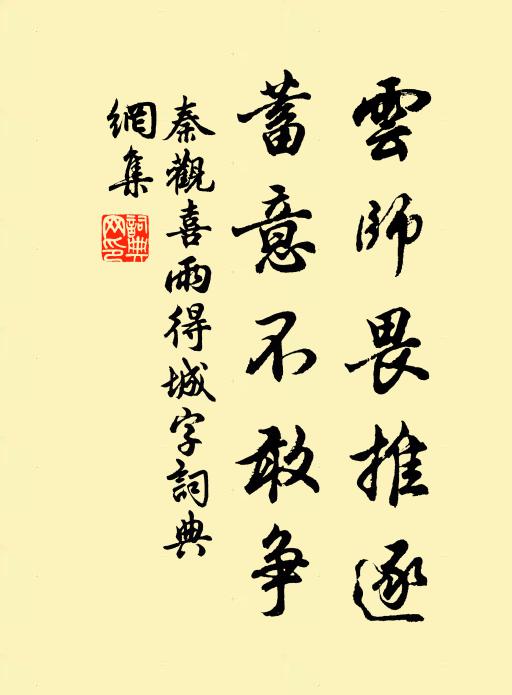 雲師畏推逐
蓄意不敢爭
秦觀喜雨得城字詞典
網集
詞典
網印